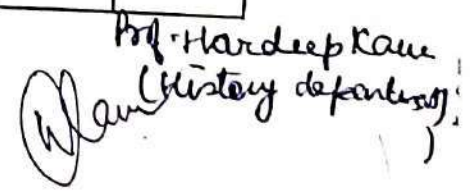 Prof. Hardeep Kaur
(History department)